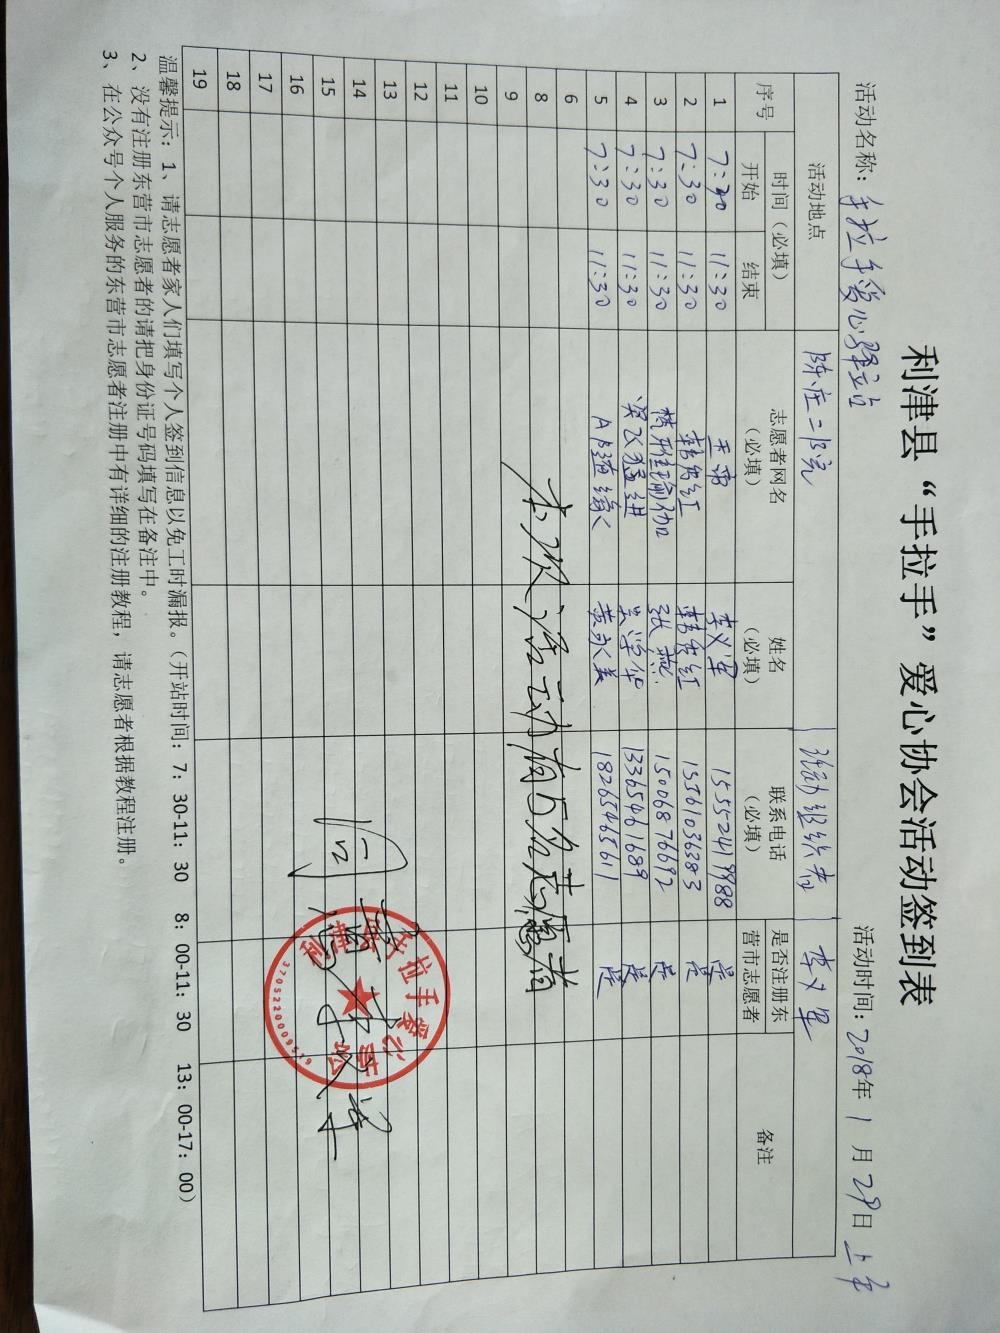 利津县“手拉手”爱心协会活动签到表
活动名称：手拉手爱心驿站 活动时间：2018年 1 月 29日 上午
活动地点 陈庄二分院 活动组织者 李义军
序号 时间（必填） 志愿者网名（必填） 姓名（必填） 联系电话（必填） 是否注册东营市志愿者 备注
开始 结束
1 7:30 11:30 李义军 15552419988 是
2 7:30 11:30 韩秀红 韩秀红 13561036383 是
3 7:30 11:30 张燕 15006876692 是
4 7:30 11:30 突飞猛进 吴学华 13365461689 是
5 7:30 11:30 A随缘 黄永美 18265465611 是
6
8 本次活动有5名志愿者
9
10
11
12
13
14
15
16
17
18
19
利津县手拉手爱心协会
3705220009519
温馨提示：1、请志愿者家人们填写个人签到信息以免工时漏报。（开站时间：7：30-11：30 8：00-11：30 13：00-17：00）
2、没有注册东营市志愿者的请把身份证号码填写在备注中。
3、在公众号个人服务的东营市志愿者注册中有详细的注册教程，请志愿者根据教程注册。